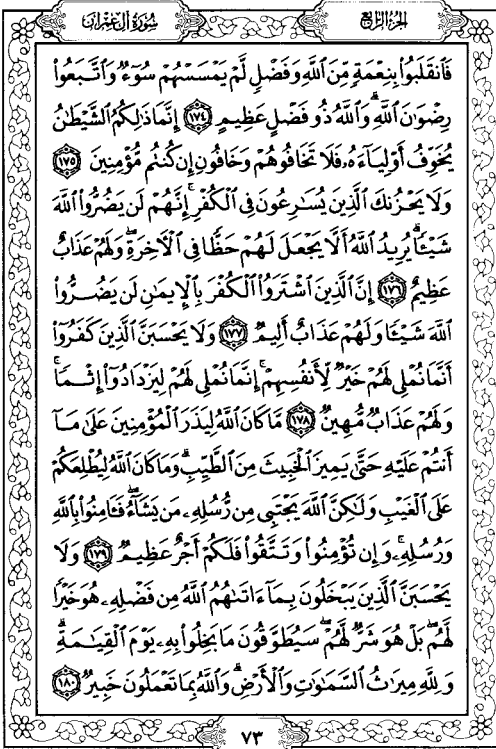 سُورَةُ آلِ عِمْرَان
الجُزءُ الرَّابِعُ
فَٱنقَلَبُوا۟ بِنِعْمَةٍ مِّنَ ٱللَّهِ وَفَضْلٍ لَّمْ يَمْسَسْهُمْ سُوٓءٌ وَٱتَّبَعُوا۟
رِضْوَٰنَ ٱللَّهِ ۗ وَٱللَّهُ ذُو فَضْلٍ عَظِيمٍ ١٧٤ إِنَّمَا ذَٰلِكُمُ ٱلشَّيْطَٰنُ
يُخَوِّفُ أَوْلِيَآءَهُۥ فَلَا تَخَافُوهُمْ وَخَافُونِ إِن كُنتُم مُّؤْمِنِينَ ١٧٥
وَلَا يَحْزُنكَ ٱلَّذِينَ يُسَٰرِعُونَ فِى ٱلْكُفْرِ ۚ إِنَّهُمْ لَن يَضُرُّوا۟ ٱللَّهَ
شَيْـًٔا ۗ يُرِيدُ ٱللَّهُ أَلَّا يَجْعَلَ لَهُمْ حَظًّا فِى ٱلْءَاخِرَةِ ۖ وَلَهُمْ عَذَابٌ
عَظِيمٌ ١٧٦ إِنَّ ٱلَّذِينَ ٱشْتَرَوُا۟ ٱلْكُفْرَ بِٱلْإِيمَٰنِ لَن يَضُرُّوا۟
ٱللَّهَ شَيْـًٔا وَلَهُمْ عَذَابٌ أَلِيمٌ ١٧٧ وَلَا يَحْسَبَنَّ ٱلَّذِينَ كَفَرُوٓا۟
أَنَّمَا نُمْلِى لَهُمْ خَيْرٌ لِّأَنفُسِهِمْ ۚ إِنَّمَا نُمْلِى لَهُمْ لِيَزْدَادُوٓا۟ إِثْمًا ۚ
وَلَهُمْ عَذَابٌ مُّهِينٌ ١٧٨ مَّا كَانَ ٱللَّهُ لِيَذَرَ ٱلْمُؤْمِنِينَ عَلَىٰ مَآ
أَنتُمْ عَلَيْهِ حَتَّىٰ يَمِيزَ ٱلْخَبِيثَ مِنَ ٱلطَّيِّبِ ۗ وَمَا كَانَ ٱللَّهُ لِيُطْلِعَكُمْ
عَلَى ٱلْغَيْبِ وَلَٰكِنَّ ٱللَّهَ يَجْتَبِى مِن رُّسُلِهِۦ مَن يَشَآءُ ۖ فَـَٔامِنُوا۟ بِٱللَّهِ
وَرُسُلِهِۦ ۚ وَإِن تُؤْمِنُوا۟ وَتَتَّقُوا۟ فَلَكُمْ أَجْرٌ عَظِيمٌ ١٧٩ وَلَا
يَحْسَبَنَّ ٱلَّذِينَ يَبْخَلُونَ بِمَآ ءَاتَىٰهُمُ ٱللَّهُ مِن فَضْلِهِۦ هُوَ خَيْرًا
لَّهُم ۖ بَلْ هُوَ شَرٌّ لَّهُمْ ۖ سَيُطَوَّقُونَ مَا بَخِلُوا۟ بِهِۦ يَوْمَ ٱلْقِيَٰمَةِ ۗ
وَلِلَّهِ مِيرَٰثُ ٱلسَّمَٰوَٰتِ وَٱلْأَرْضِ ۗ وَٱللَّهُ بِمَا تَعْمَلُونَ خَبِيرٌ ١٨٠
٧٣